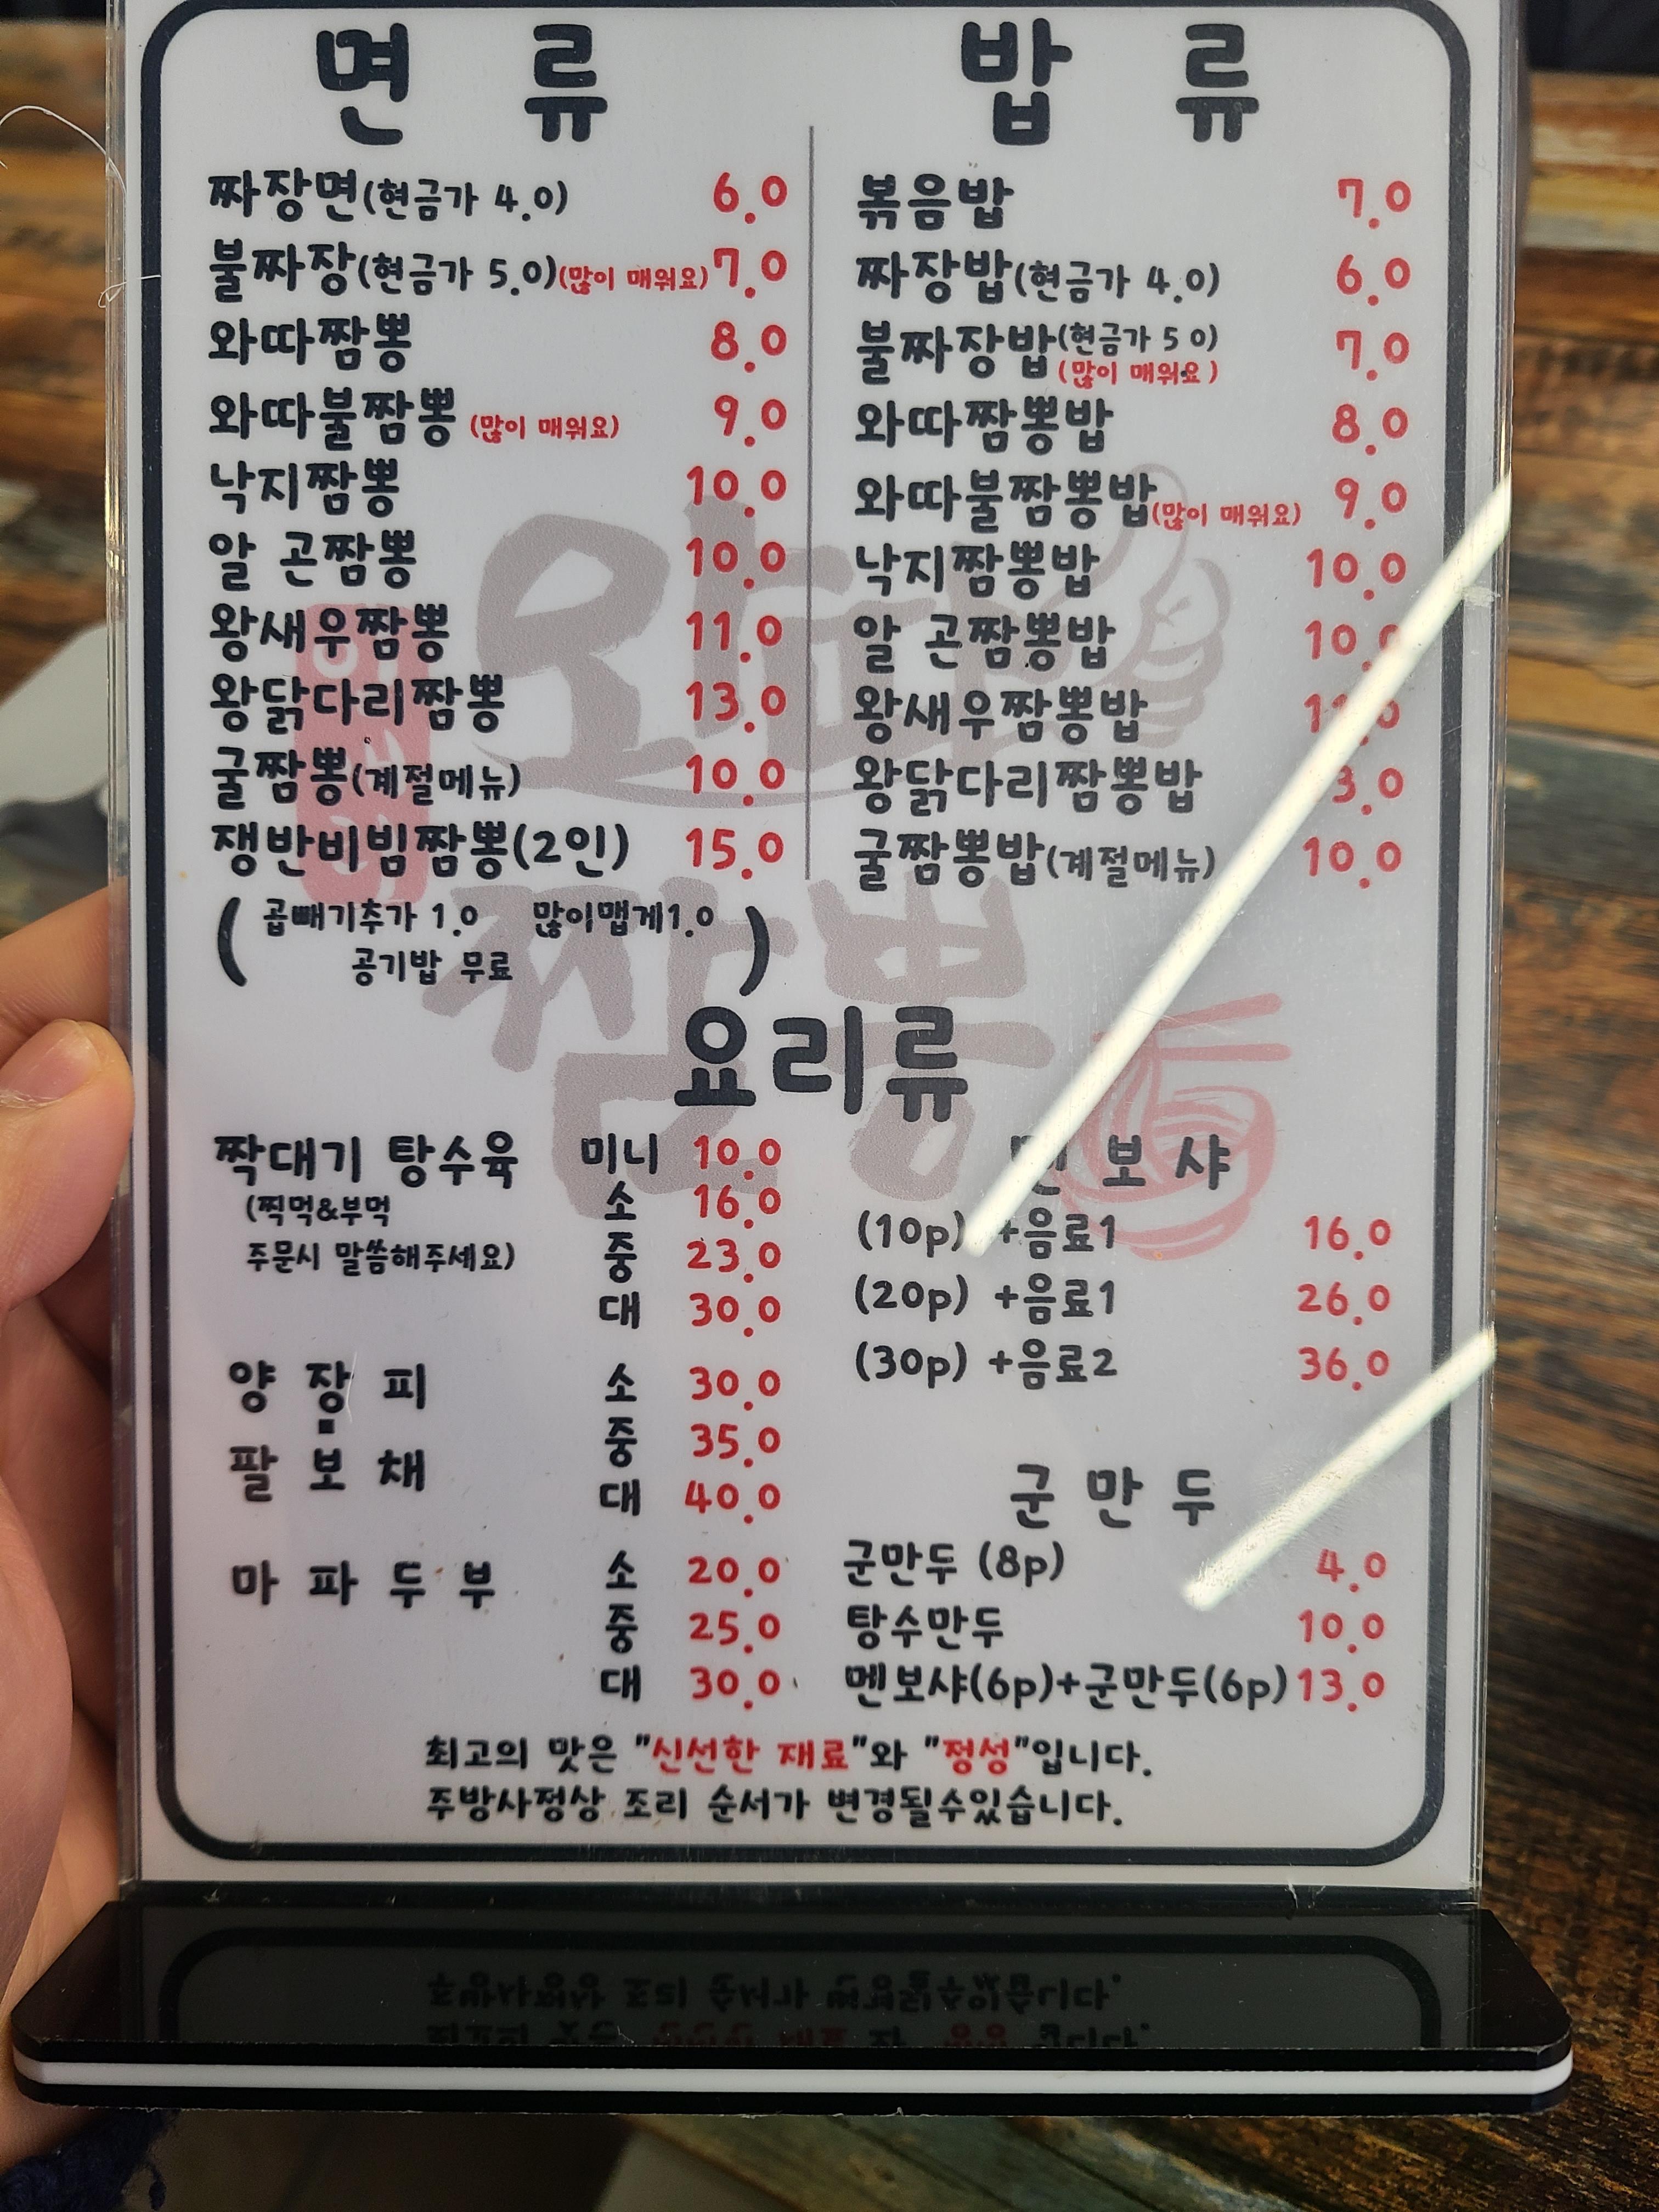 면 류
짜장면(현금가 4.0) 6.0
불짜장(현금가 5.0)(많이 매워요) 7.0
와따짬뽕 8.0
와따불짬뽕 (많이 매워요) 9.0
낙지짬뽕 10.0
알 곤짬뽕 10.0
왕새우짬뽕 11.0
왕닭다리짬뽕 13.0
굴짬뽕(계절메뉴) 10.0
쟁반비빔짬뽕(2인) 15.0
( 곱빼기추가 1.0 많이맵게1.0
공기밥 무료 )
밥 류
볶음밥 7.0
짜장밥(현금가 4.0) 6.0
불짜장밥(현금가 5 0) 7.0
(많이 매워요)
와따짬뽕밥 8.0
와따불짬뽕밥(많이 매워요) 9.0
낙지짬뽕밥 10.0
알 곤짬뽕밥 10.0
왕새우짬뽕밥
왕닭다리짬뽕밥
굴짬뽕밥(계절메뉴) 10.0
와따
짬뽕
요리류
짝대기 탕수육 미니 10.0
(찍먹&부먹 소 16.0
주문시 말씀해주세요) 중 23.0
대 30.0
양 장 피 소 30.0
중 35.0
팔 보 채
대 40.0
마 파 두 부 소 20.0
중 25.0
대 30.0
보 샤
(10p) +음료1 16.0
(20p) +음료1 26.0
(30p) +음료2 36.0
군 만 두
군만두 (8p) 4.0
탕수만두 10.0
멘보샤(6p)+군만두(6p) 13.0
최고의 맛은 "신선한 재료"와 "정성"입니다.
주방사정상 조리 순서가 변경될수있습니다.